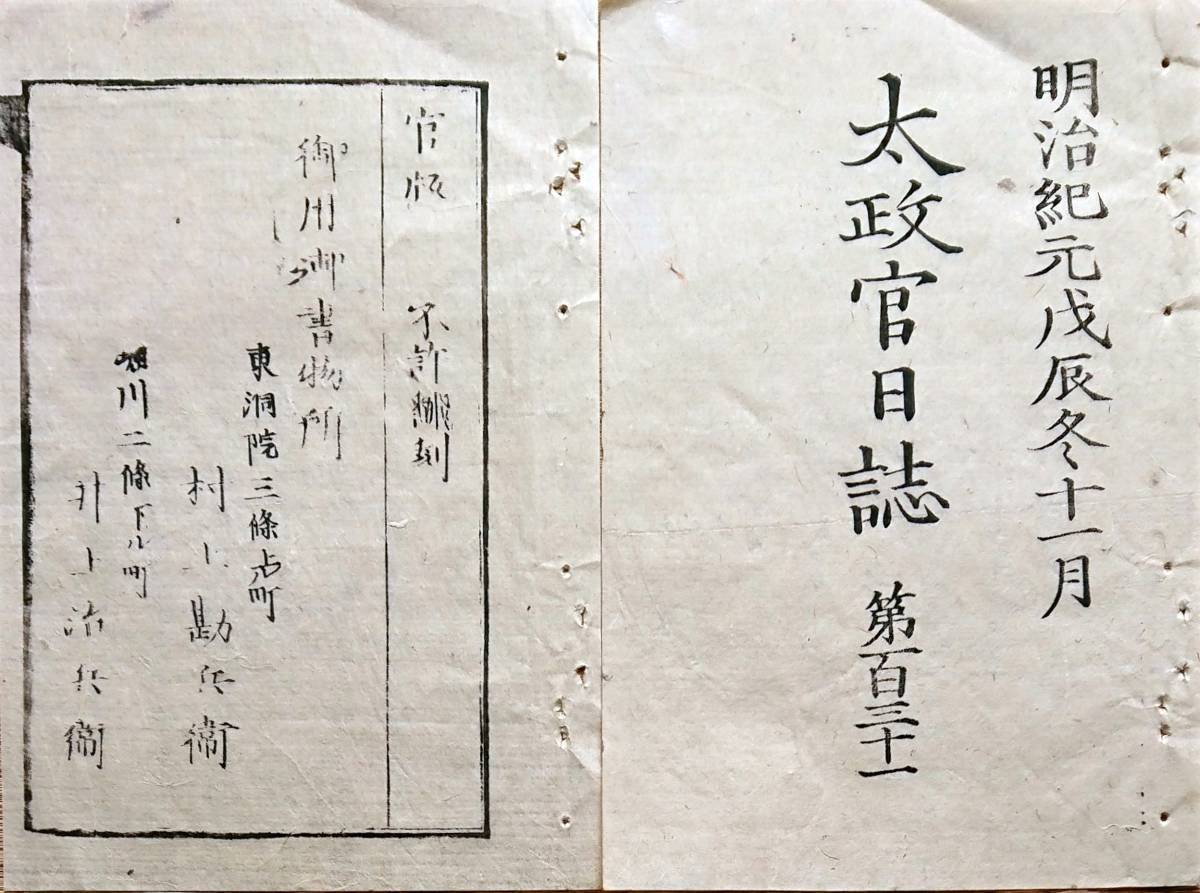 明治紀元戊辰冬十一月
太政官日誌 第百三十一
官版 不許翻刻
御用御書物所
東洞院三條上ル町
村上勘兵衛
堀川二條下ル町
井上治兵衛